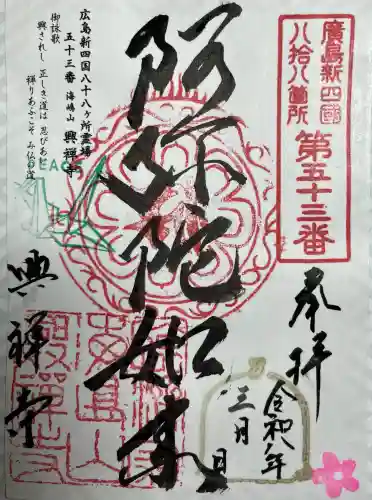 廣島新四國
八拾八箇所
第五十三番
奉拝
令和八年
三月
日
阿弥陀如来
広島新四国八十八ヶ所霊場
五十三番 海嶋山 興禅寺
御詠歌
興されし 正しき道は 忍びあに
禅りあふこそ み仏の道
興禅寺